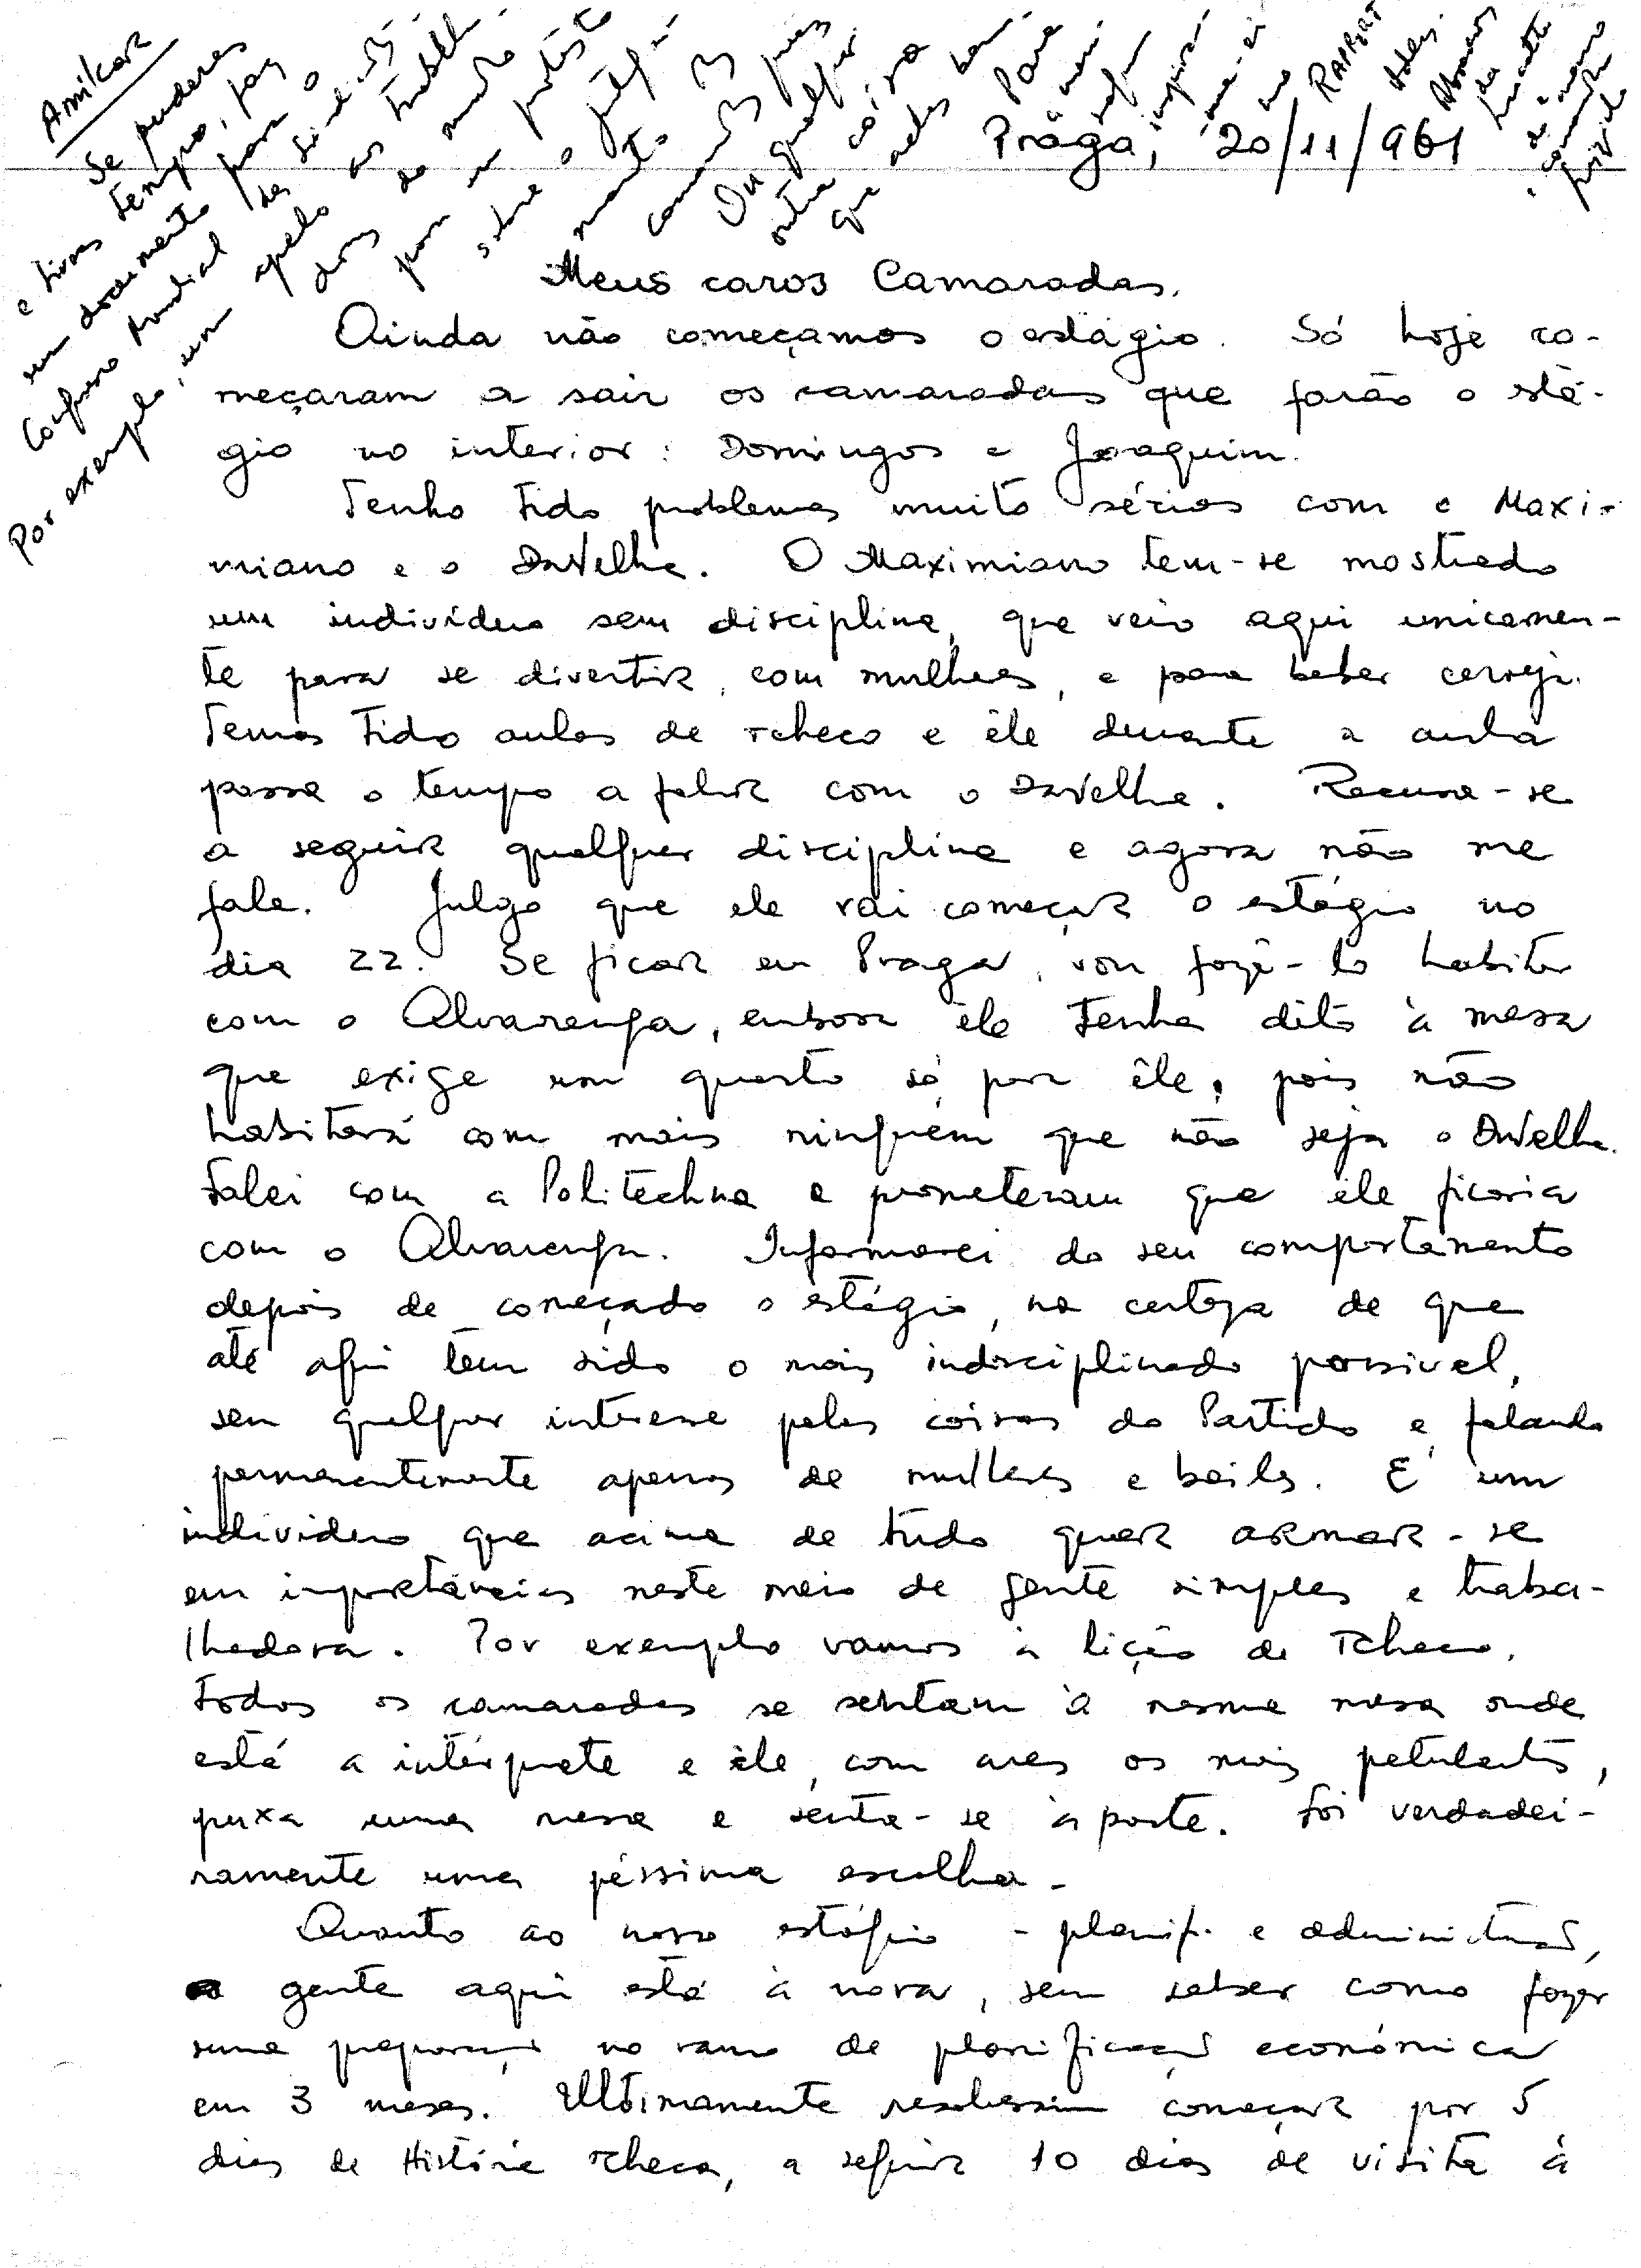 Amilcar
Se puderes
e tiveres tempo, faz
um documento para o
Congresso Mundial dos Sindicatos
Por exemplo, um apelo aos trabalha-
dores do mundo
para um protesto
sobre o julga-
mento dos
camaradas presos
Ou qualquer
outra coisa
que achas bem
Para
a mim
inspirar-
me-ei
no
RAPPORT
Abraços
Praga, 20/11/961
Meus caros Camaradas,
Ainda não começamos o estágio. Só hoje co-
meçaram a sair os camaradas que farão o está-
gio no interior: Domingos e Joaquim.
Tenho tido problemas muito sérios com o Maxi-
miano e o DuVelhe. O Maximiano tem-se mostrado
um indivíduo sem disciplina, que veio aqui unicamen-
te para se divertir, com mulheres, e para beber cerveja.
Temos tido aulas de tcheco e êle durante a aula
passa o tempo a falar com o DuVelhe. Recusa-se
a seguir qualquer disciplina e agora não me
fala. Julgo que ele vai começar o estágio no
dia 22. Se ficar em Praga, vou fazê-lo habitar
com o Alvarenga, embora êle tenha dito à mesa
que exige um quarto só par êle, pois não
habitará com mais ninguém que não seja o DuVelhe.
Falei com a Politechna e prometeram que êle ficaria
com o Alvarenga. Informarei do seu comportamento
depois de começado o estágio, na certeza de que
até aqui tem sido o mais indisciplinado possivel,
sem qualquer interesse pelas coisas do Partido e falando
permanentemente apenas de mulheres e bailes. É um
individuo que acima de tudo quer armar-se
em importâncias neste meio de gente simples e traba-
lhadora. Por exemplo vamos à lição de Tcheco,
todos os camaradas se sentam à mesma mesa onde
está a intérprete e êle, com ares os mais petulantes,
puxa uma mesa e senta-se à parte. Foi verdadei-
ramente uma péssima escolha-
Quanto ao nosso estágio - planif. e administração,
a gente aqui está à nora, sem saber como fazer
uma preparação no ramo de planificação económica
em 3 meses. Ultimamente resolveram começar por 5
dias de História Tcheca, a seguir 10 dias de visita à